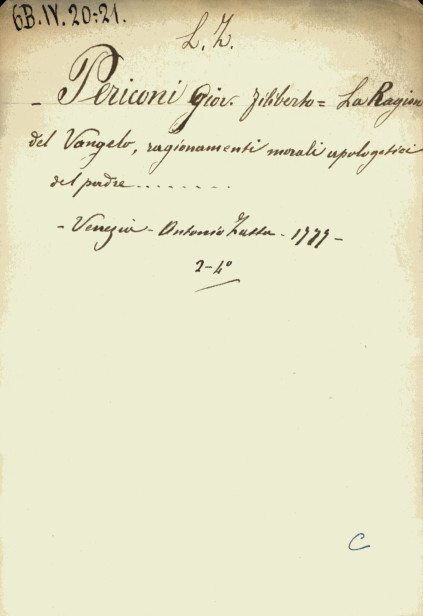 6B.IV.20:21.
L. Z.
- Periconi Giov. Filiberto = La Ragion
del Vangelo, ragionamenti morali apologetici
del padre . . . . . . .
- Venezia - Antonio Zatta - 1777 -
2 - 4º
C